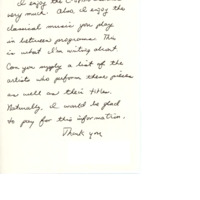 I enjoy the
very much. Also, I enjoy the
classical music you play
in between programs. This
is what I'm writing about.
Can you supply a list of the
artists who perform these pieces
as well as their titles.
Naturally, I would be glad
to pay for this information.
Thank you